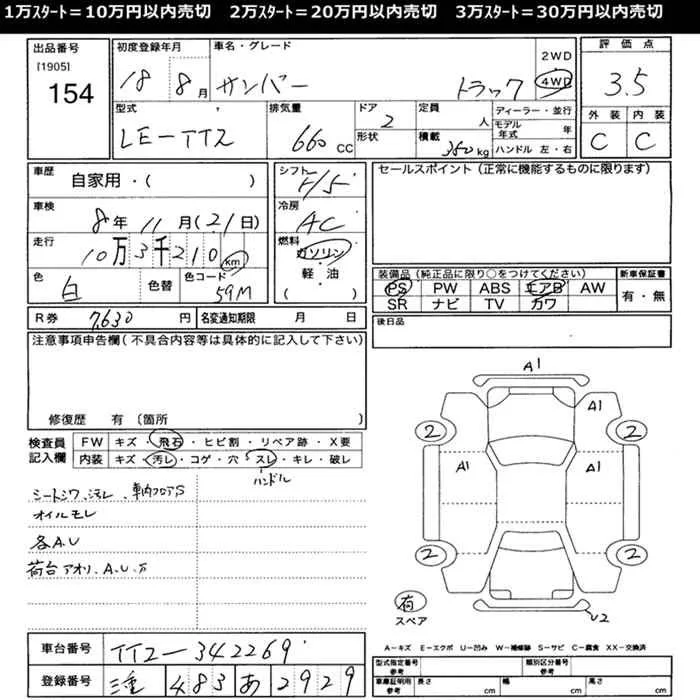 1万ｽﾀｰﾄ＝10万円以内売切　2万ｽﾀｰﾄ＝20万円以内売切　3万ｽﾀｰﾄ＝30万円以内売切
出品番号
[1905]
154
初度登録年月
18年 8月
車名・グレード
サンバー トラック
2WD
4WD
評価点
3.5
外装 内装
C C
型式
LE-TT2
排気量
660 CC
ドア
2
形状
定員
人
積載
350kg
ディーラー・並行
モデル年式 年
ハンドル 左・右
車歴
自家用・( )
車検
8年 11月(21日)
走行
10万3千210km
色
白
色替
色コード
59M
シフト
F/5
冷房
AC
燃料
ガソリン
・
軽・油
( )
セールスポイント(正常に機能するものに限ります)
装備品(純正品に限り○をつけてください)
PS PW ABS エアB AW
SR ナビ TV カワ
新車保証書
有・無
R券 7,630 円
名変通知期限 月 日
後日品
注意事項申告欄(不具合内容等は具体的に記入して下さい)
修復歴 有 〔箇所 〕
検査員記入欄
FW キズ・飛石・ヒビ割・リペア跡・X要
内装 キズ・汚レ・コゲ・穴・スレ・キレ・破レ
ハンドル
シートシワ、汚レ、車内フロアS
オイルモレ
各A.U
荷台アオリ、A.U.
A1
A1
2 2
A1 A1
2 2
荷
スペア
U2
A－キズ E－エクボ U－凹み W－補修跡 S－サビ C－腐食 XX－交換済
車台番号 TT2-342269
登録番号 483 あ 2929
型式指定番号
参考
類別区分番号
参考
車庫証明用
参考
長さ cm
幅 cm
高さ cm